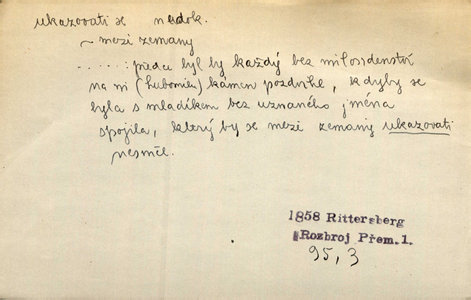 ukazovati se nedok.
~ mezi zemany
......: předce byl by každý bez milosrdenství
na ni (Lubomilu) kámen pozdvihl, kdyby se
byla s mladíkem bez uznaného jména
spojila, který by se mezi zemany ukazovati
nesměl.
1858 Rittersberg
Rozbroj Přem. 1.
95, 3